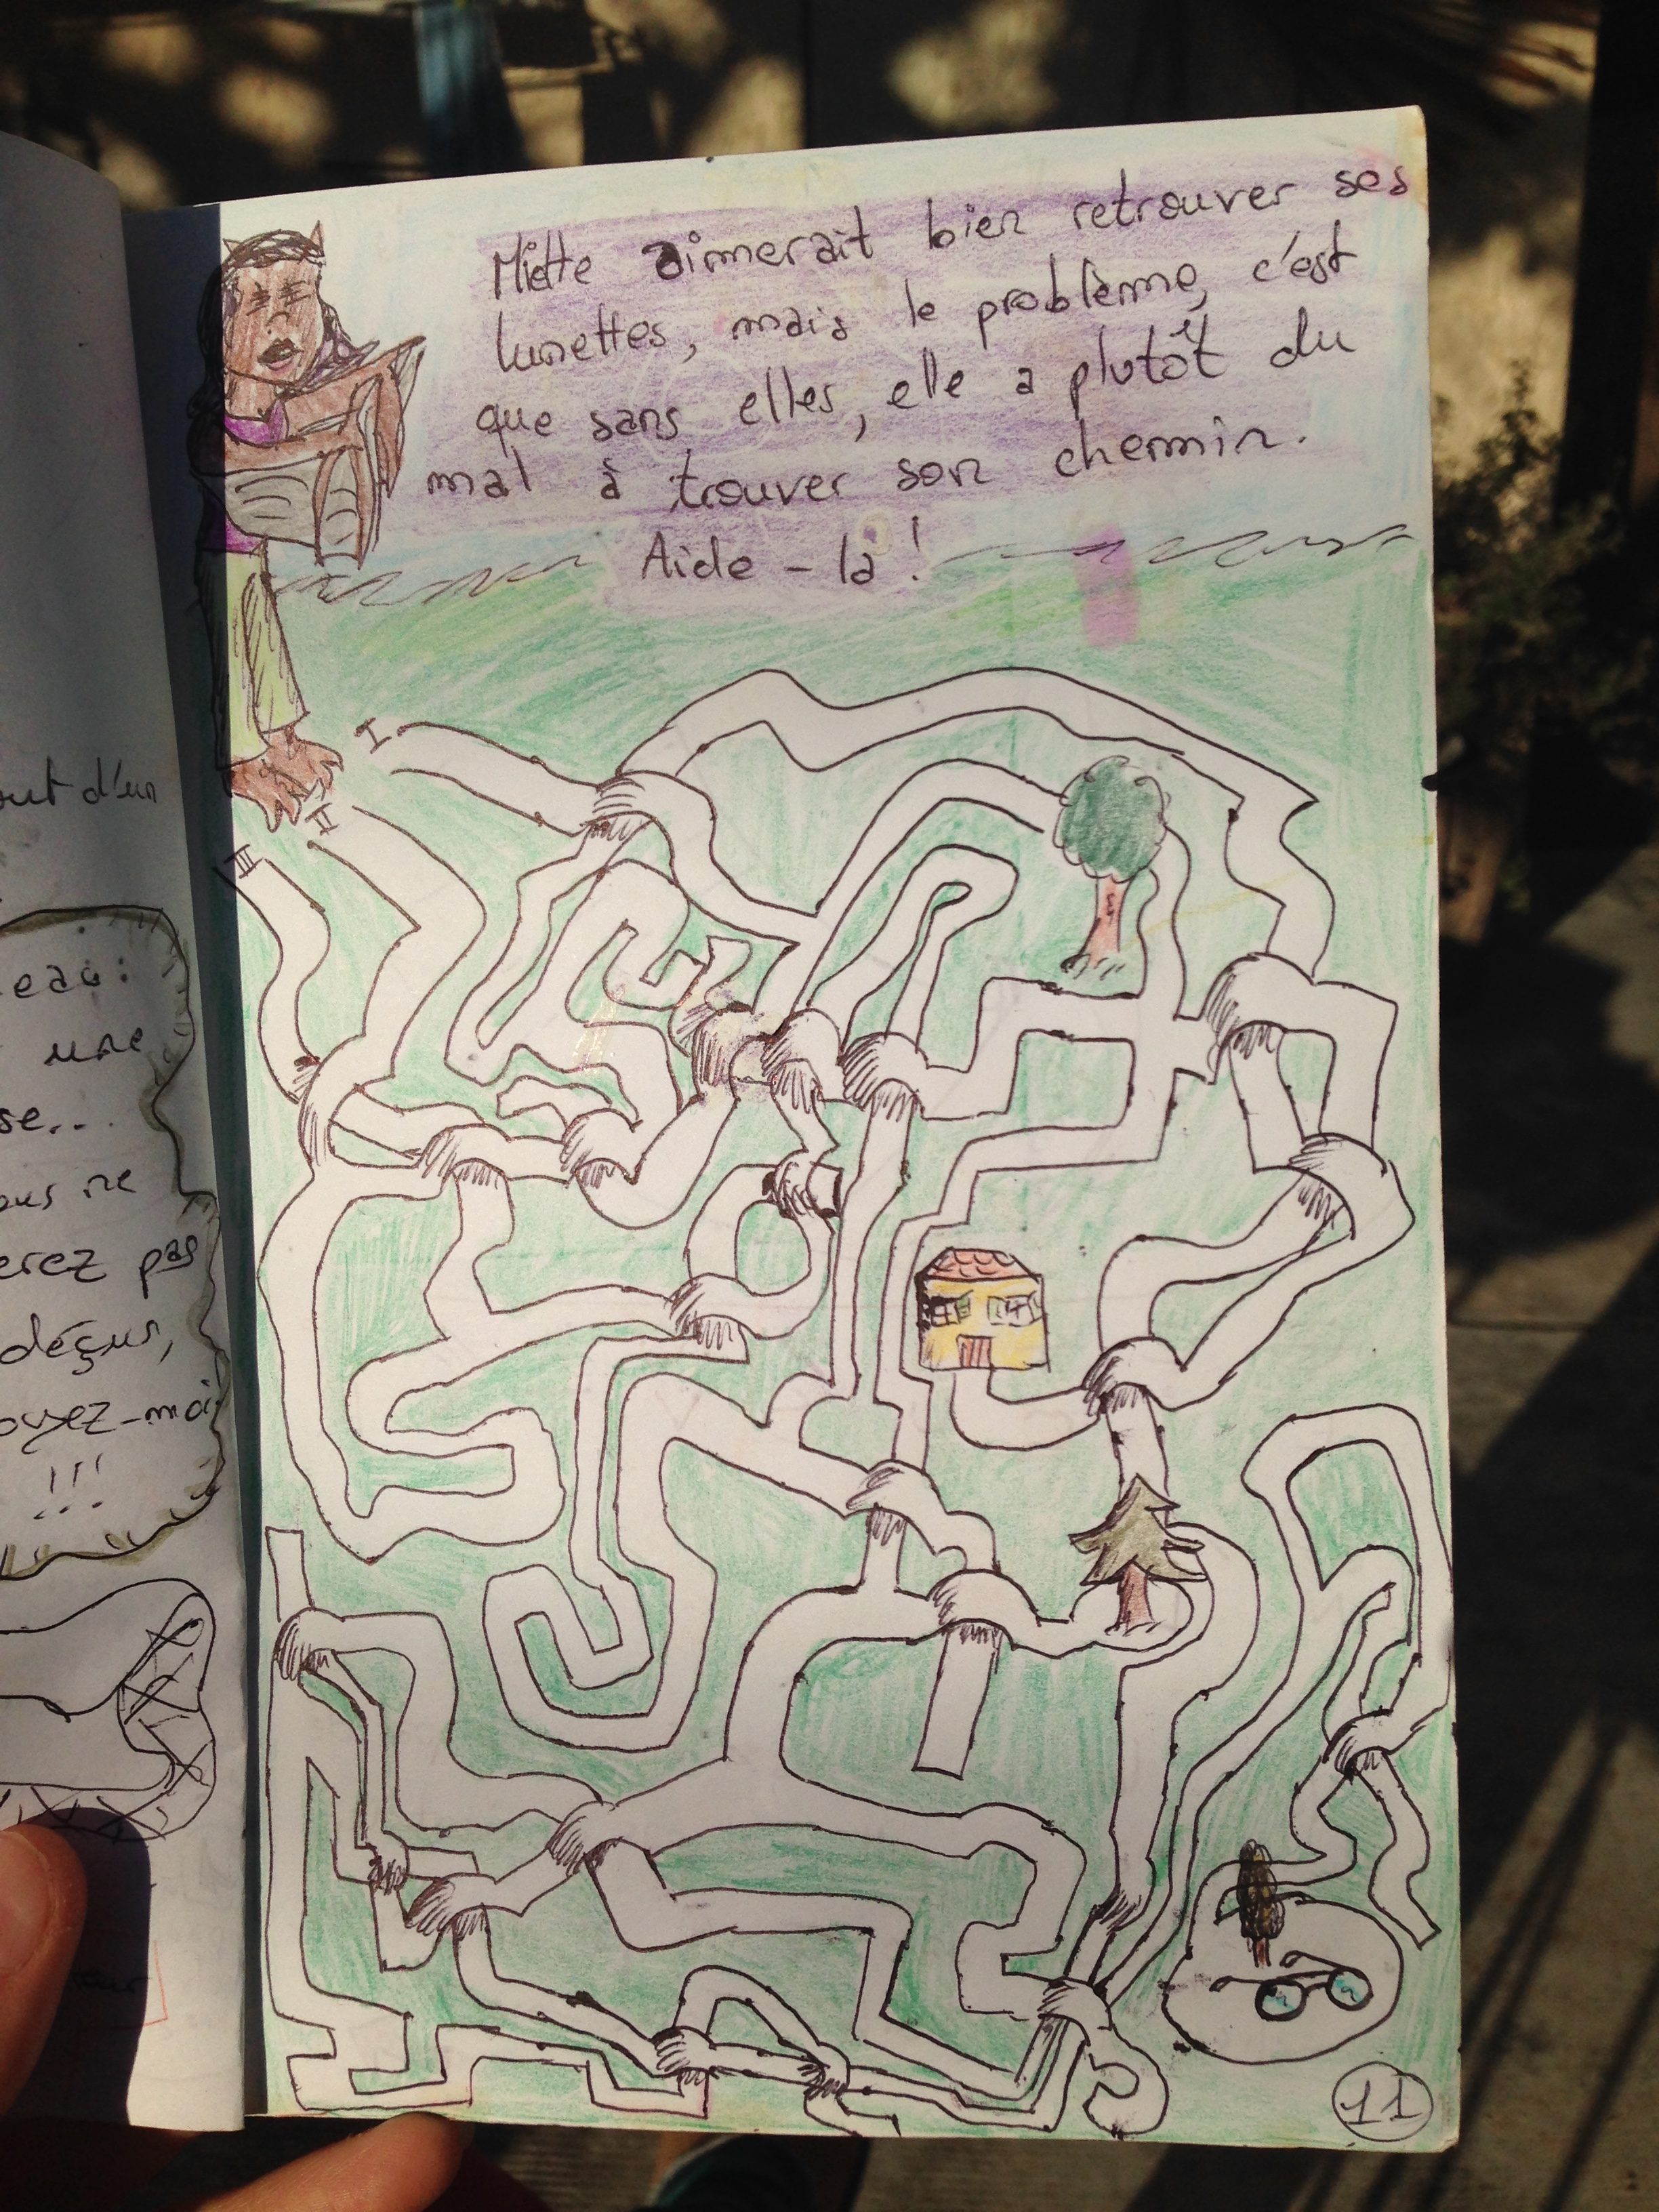 Miette aimerait bien retrouver ses
lunettes, mais le problème, c'est
que sans elles, elle a plutôt du
mal à trouver son chemin.
Aide-la !
I
II
III
out d'un
eau :
une
se...
ous ne
erez pas
déçus,
oyez-moi
!!!
11